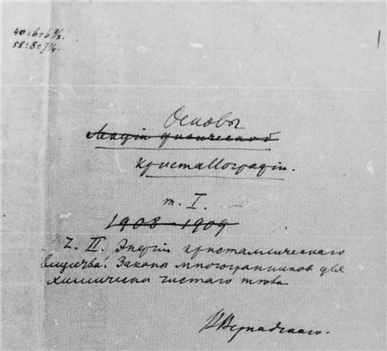 40:6=6⅔
58:8=7¼
Основы
Лекцiи физической
кристаллографiи.
т. I.
1908-1909
Z. II. Энергiя кристаллическаго
вещества. Законы многогранников для
химически чистаго тѣла
Вернадскаго.